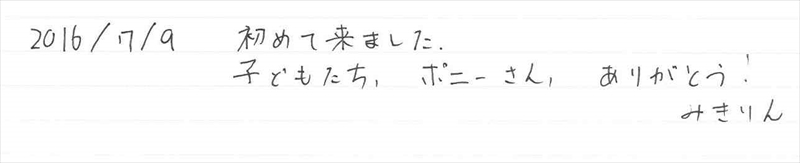 2016/7/9 初めて来ました.
子どもたち, ポニーさん, ありがとう!
みきりん